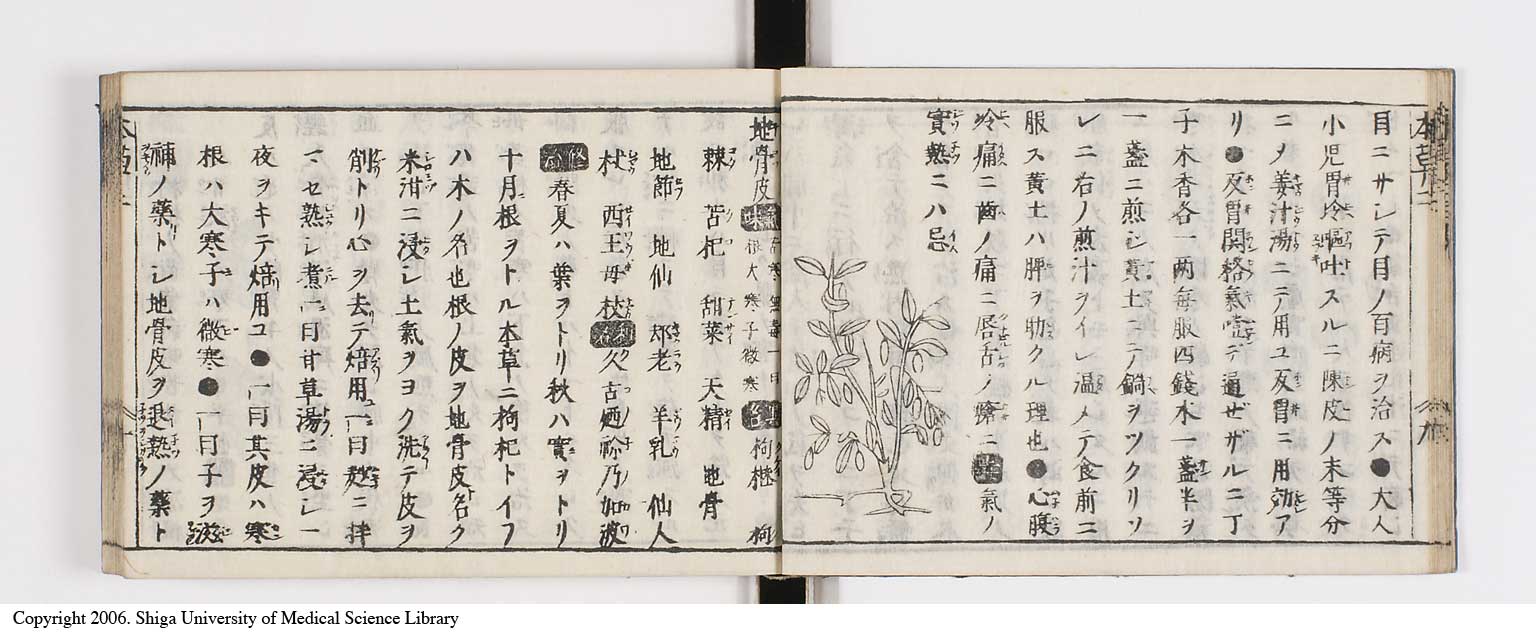 目ニサシテ目ノ百病ヲ治ス●大人
小児胃冷嘔吐スルニ陳皮ノ末等分
ニノ姜汁湯ニテ用ユ反胃ニ用効ア
リ●反胃関格氣壅テ通ゼザルニ丁
子木香各一両毎服四錢水一盞半ヲ
一盞ニ煎シ黄土ニテ餅ヲツクリソ
レニ右ノ煎汁ヲイレ温メテ食前ニ
服ス黄土ハ脾ヲ助クル理也●心腹
冷痛ニ齒ノ痛ニ唇舌ノ瘡ニ氣ノ
實熱ニハ忌
地骨皮 氣味 苦寒無毒一曰根大寒子微寒 異名 枸檵 枸
棘 苦杞 甜菜 天精 地骨
地節 地仙 却老 羊乳 仙人
杖 西王母杖 和名 久古
修治 春夏ハ葉ヲトリ秋ハ實ヲトリ
十月根ヲトル本草ニ枸杞トイフ
ハ木ノ名也根ノ皮ヲ地骨皮名ク
米泔ニ浸シ土氣ヲヨク洗テ皮ヲ
削トリ心ヲ去テ焙用一曰麪ニ拌
マセ熟シ煮一曰甘草湯ニ浸シ一
夜ヲキテ焙用ユ●一曰其皮ハ寒
根ハ大寒子ハ微寒●一曰子ヲ滋
補ノ藥トシ地骨皮ヲ退熱ノ藥ト
Copyright 2006. Shiga University of Medical Science Library